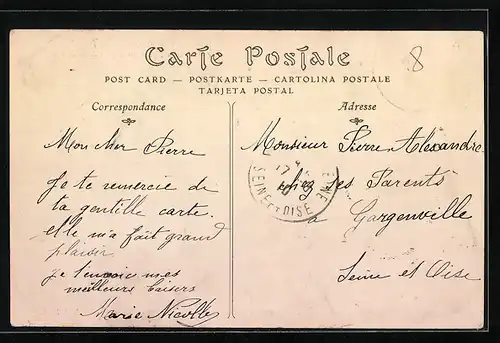 Carte Postale
8
POST CARD — POSTKARTE — CARTOLINA POSTALE
TARJETA POSTAL
Correspondance
Adresse
Mon cher Pierre
Je te remercie de
ta gentille carte.
elle m'a fait grand
plaisir.
je t'envoie mes
meilleurs baisers
Marie Nicolle
Monsieur Pierre Alexandre
chez ses Parents
à Gargenville
Seine et Oise
17
SEINE ET OISE